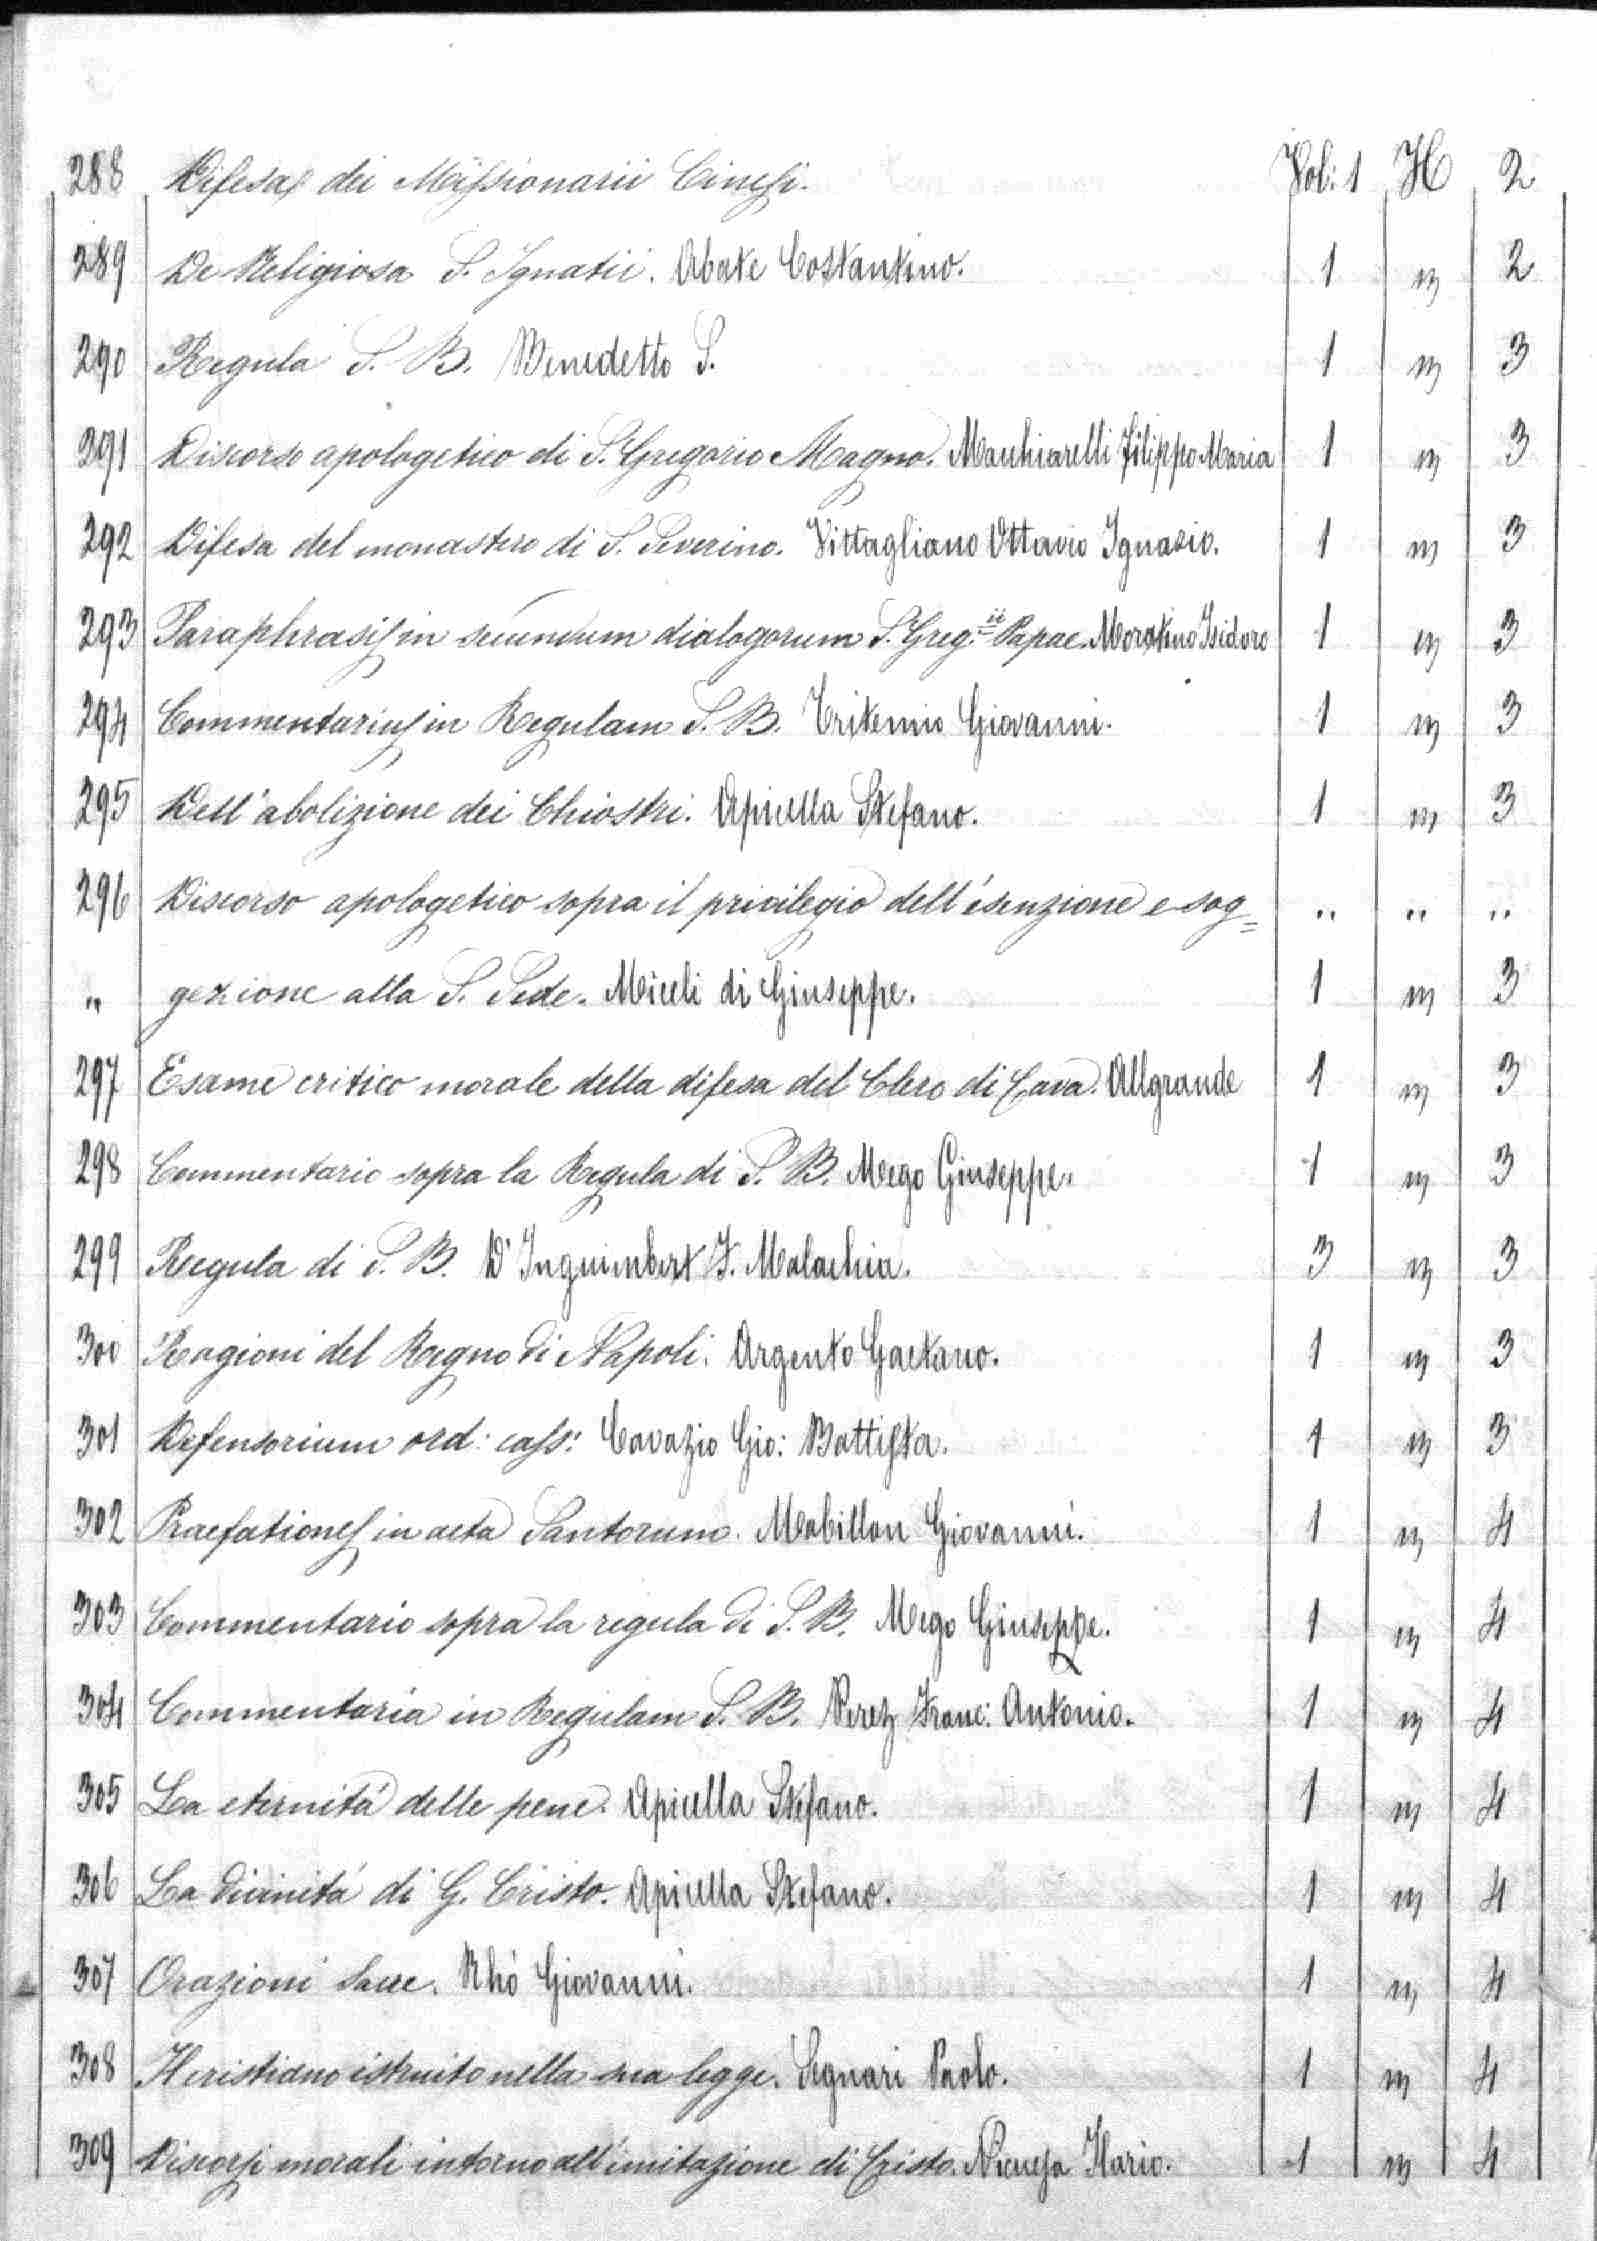 288 Difesa dei Missionarii Cinesi. Vol: 1 H 2
289 De Religiosa S. Ignatii. Abate Costantino. 1 " 2
290 Regula S. B. Benedetto S. 1 " 3
291 Discorso apologetico di S. Gregorio Magno. Macchiarelli Filippo Maria 1 " 3
292 Difesa del monastero di S. Severino. Vittagliano Ottavio Ignazio. 1 " 3
293 Paraphrasis in secundum dialogorum S. Greg.ii Papae. Isidoro 1 " 3
294 Commentarius in Regulam S. B. Tritemio Giovanni. 1 " 3
295 Dell'abolizione dei Chiostri. Apicella Stefano. 1 " 3
296 Discorso apologetico sopra il privilegio dell'esenzione e sog= " " "
" gezione alla S. Sede. Miceli di Giuseppe. 1 " 3
297 Esame critico morale della difesa del Clero di Cava. Allgrande 1 " 3
298 Commentario sopra la Regula di S. B. Mego Giuseppe. 1 " 3
299 Regula di S. B. D'Inguimbert F. Malachia. 3 " 3
300 Ragioni del Regno di Napoli. Argento Gaetano. 1 " 3
301 Defensorium ord: cass: Cavazio Gio: Battista. 1 " 3
302 Praefationes in acta Santorum. Mabillon Giovanni. 1 " 4
303 Commentario sopra la regula di S. B. Mego Giuseppe. 1 " 4
304 Commentaria in Regulam S. B. Perez Franc: Antonio. 1 " 4
305 La eternitá delle pene. Apicella Stefano. 1 " 4
306 La divinitá di G. Cristo. Apicella Stefano. 1 " 4
307 Orazioni sacre. Rhò Giovanni. 1 " 4
308 Il cristiano istruito nella sua legge. Segnari Paolo. 1 " 4
309 Discorsi morali intorno all'imitazione di Cristo. Ilario. 1 " 4